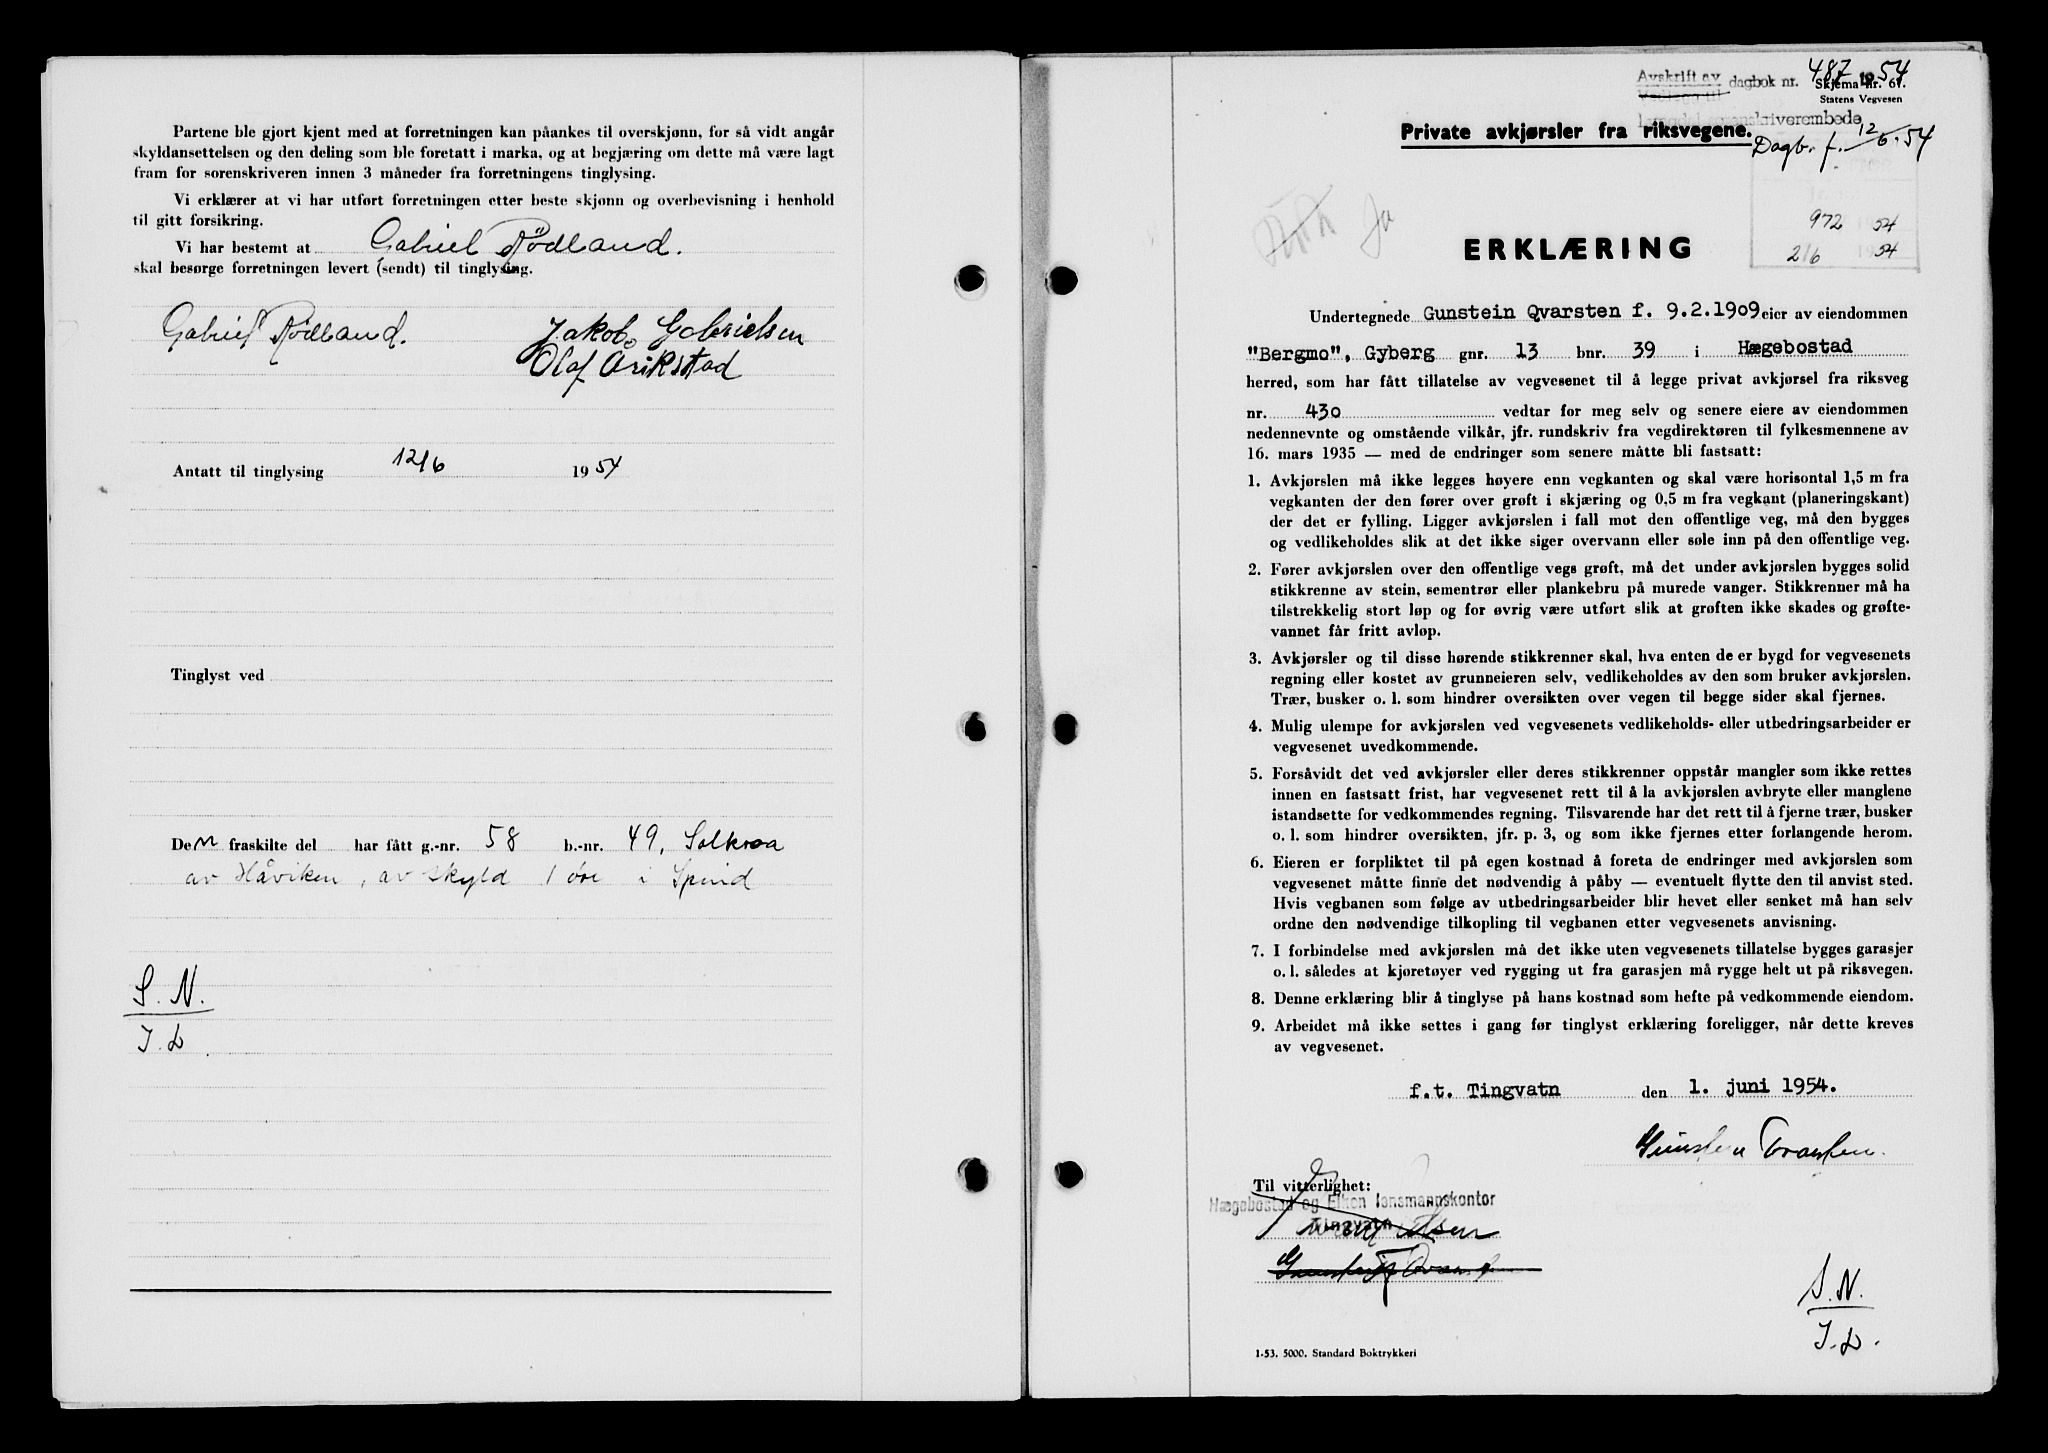 Partene ble gjort kjent med at forretningen kan påankes til overskjønn, for så vidt angår
skyldansettelsen og den deling som ble foretatt i marka, og at begjæring om dette må være lagt
fram for sorenskriveren innen 3 måneder fra forretningens tinglysing.
Vi erklærer at vi har utført forretningen etter beste skjønn og overbevisning i henhold
til gitt forsikring.
Vi har bestemt at Gabriel Rödland.
skal besørge forretningen levert (sendt) til tinglysing.
Gabriel Rödland. Jakob Gabrielsen
Olaf Orikstad
Antatt til tinglysing 12/6 1954
Tinglyst ved
Den fraskilte del har fått g.-nr. 58 b.-nr. 49, Solkroa
av Håviken, av skyld 1 øre i Spind
S. N.
I. L.
Avskrift av dagbok nr. 487 1954
Skjema nr. 61.
Statens Vegvesen
skriverembede
Private avkjørsler fra riksvegene.
Dagb. f. 12/6. 54
Ja
972 54
2/6 1954
ERKLÆRING
Undertegnede Gunstein Qvarsten f. 9.2.1909 eier av eiendommen
"Bergmo", Gyberg gnr. 13 bnr. 39 i Hægebostad
herred, som har fått tillatelse av vegvesenet til å legge privat avkjørsel fra riksveg
nr. 430 vedtar for meg selv og senere eiere av eiendommen
nedennevnte og omstående vilkår, jfr. rundskriv fra vegdirektøren til fylkesmennene av
16. mars 1935 — med de endringer som senere måtte bli fastsatt:
1. Avkjørslen må ikke legges høyere enn vegkanten og skal være horisontal 1,5 m fra
vegkanten der den fører over grøft i skjæring og 0,5 m fra vegkant (planeringskant)
der det er fylling. Ligger avkjørslen i fall mot den offentlige veg, må den bygges
og vedlikeholdes slik at det ikke siger overvann eller søle inn på den offentlige veg.
2. Fører avkjørslen over den offentlige vegs grøft, må det under avkjørslen bygges solid
stikkrenne av stein, sementrør eller plankebru på murede vanger. Stikkrenner må ha
tilstrekkelig stort løp og for øvrig være utført slik at grøften ikke skades og grøfte-
vannet får fritt avløp.
3. Avkjørsler og til disse hørende stikkrenner skal, hva enten de er bygd for vegvesenets
regning eller kostet av grunneieren selv, vedlikeholdes av den som bruker avkjørslen.
Trær, busker o. l. som hindrer oversikten over vegen til begge sider skal fjernes.
4. Mulig ulempe for avkjørslen ved vegvesenets vedlikeholds- eller utbedringsarbeider er
vegvesenet uvedkommende.
5. Forsåvidt det ved avkjørsler eller deres stikkrenner oppstår mangler som ikke rettes
innen en fastsatt frist, har vegvesenet rett til å la avkjørslen avbryte eller manglene
istandsette for vedkommendes regning. Tilsvarende har det rett til å fjerne trær, busker
o. l. som hindrer oversikten, jfr. p. 3, og som ikke fjernes etter forlangende herom.
6. Eieren er forpliktet til på egen kostnad å foreta de endringer med avkjørslen som
vegvesenet måtte finne det nødvendig å påby — eventuelt flytte den til anvist sted.
Hvis vegbanen som følge av utbedringsarbeider blir hevet eller senket må han selv
ordne den nødvendige tilkopling til vegbanen etter vegvesenets anvisning.
7. I forbindelse med avkjørslen må det ikke uten vegvesenets tillatelse bygges garasjer
o. l. således at kjøretøyer ved rygging ut fra garasjen må rygge helt ut på riksvegen.
8. Denne erklæring blir å tinglyse på hans kostnad som hefte på vedkommende eiendom.
9. Arbeidet må ikke settes i gang før tinglyst erklæring foreligger, når dette kreves
av vegvesenet.
f.t. Tingvatn den 1. juni 1954.
Gunstein Qvarsten.
Til vitterlighet:
Hægebostad og Eiken lensmannskontor
Tingvatn
S. N.
I. L.
1-53. 5000. Standard Boktrykkeri